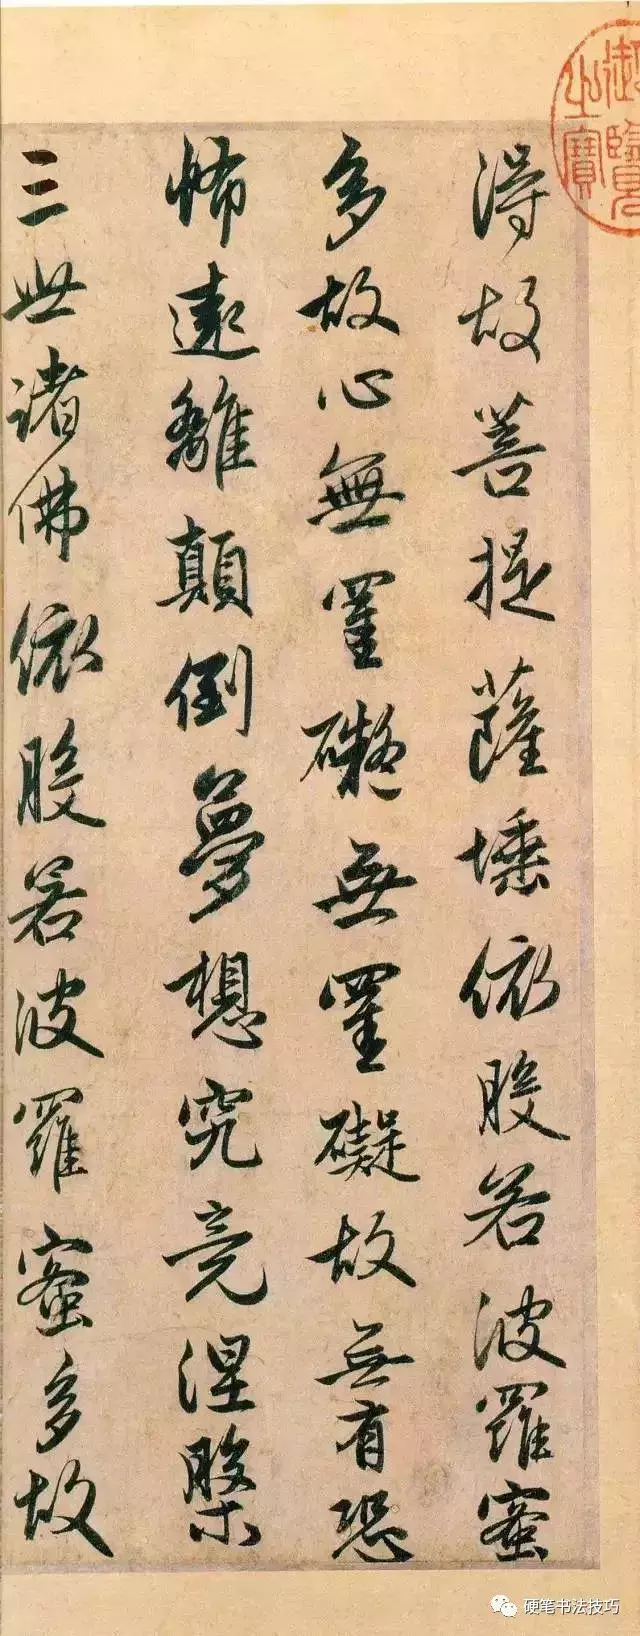 得故菩提薩埵依般若波羅蜜
多故心無罣礙無罣礙故無有恐
怖遠離顛倒夢想究竟涅槃
三世諸佛依般若波羅蜜多故
御覽之寶
硬笔书法技巧